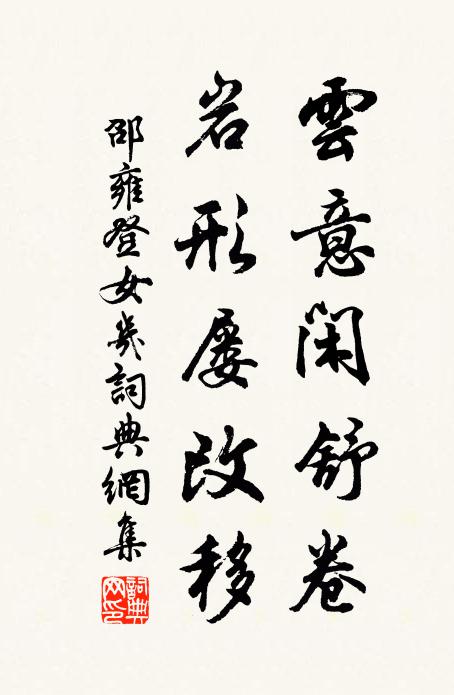 雲意閑舒卷
岩形屡改移
邵雍登女几詞典網集
詞典网印